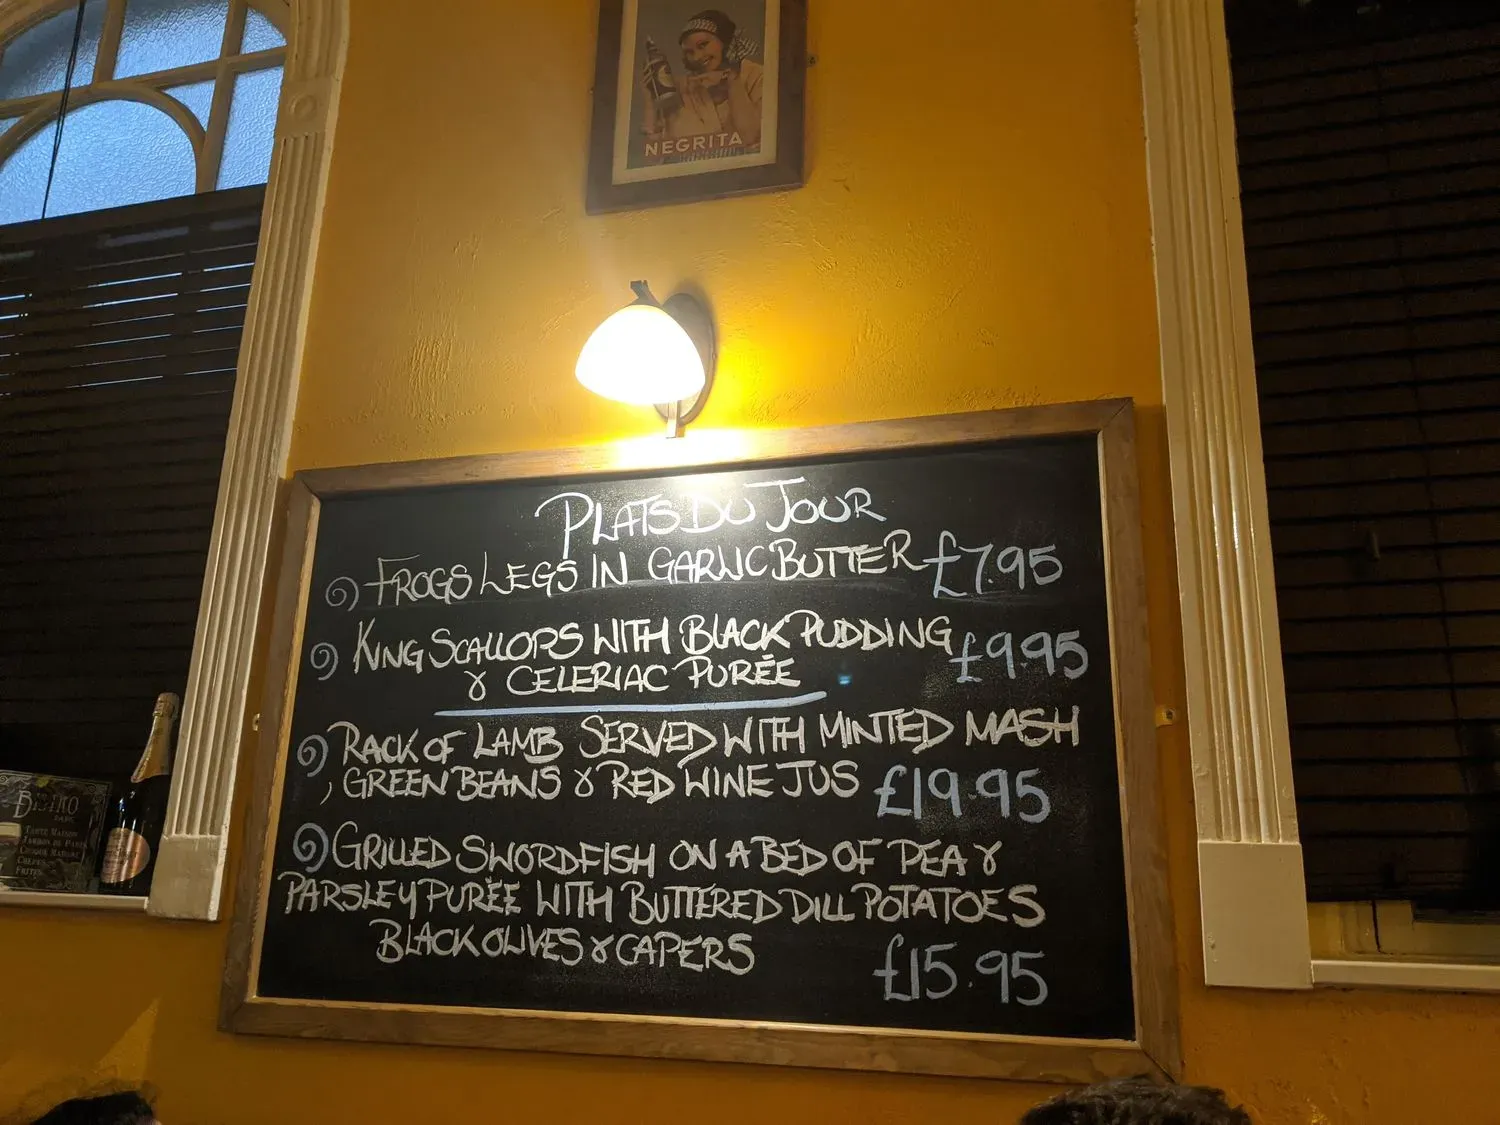 NEGRITA
PLATS DU JOUR
FROGS LEGS IN GARLIC BUTTER £7.95
KING SCALLOPS WITH BLACK PUDDING
& CELERIAC PURÉE £9.95
RACK OF LAMB SERVED WITH MINTED MASH
, GREEN BEANS & RED WINE JUS £19.95
GRILLED SWORDFISH ON A BED OF PEA &
PARSLEY PURÉE WITH BUTTERED DILL POTATOES
BLACK OLIVES & CAPERS £15.95
BISTRO
CARTE MAISON
JAMBON DE PARIS
CROQUE MADAME
CRÊPES
FRITES